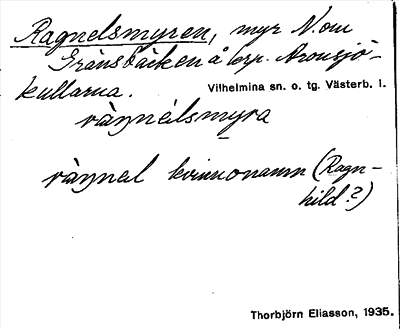 Ragnelsmyren, myr N. om
Gränsbäcken å krp. Aronsjö-
kullarna.
Vilhelmina sn. o. tg. Västerb. l.
kvinnonamn (Ragn-
hild?)
Thorbjörn Eliasson, 1935.